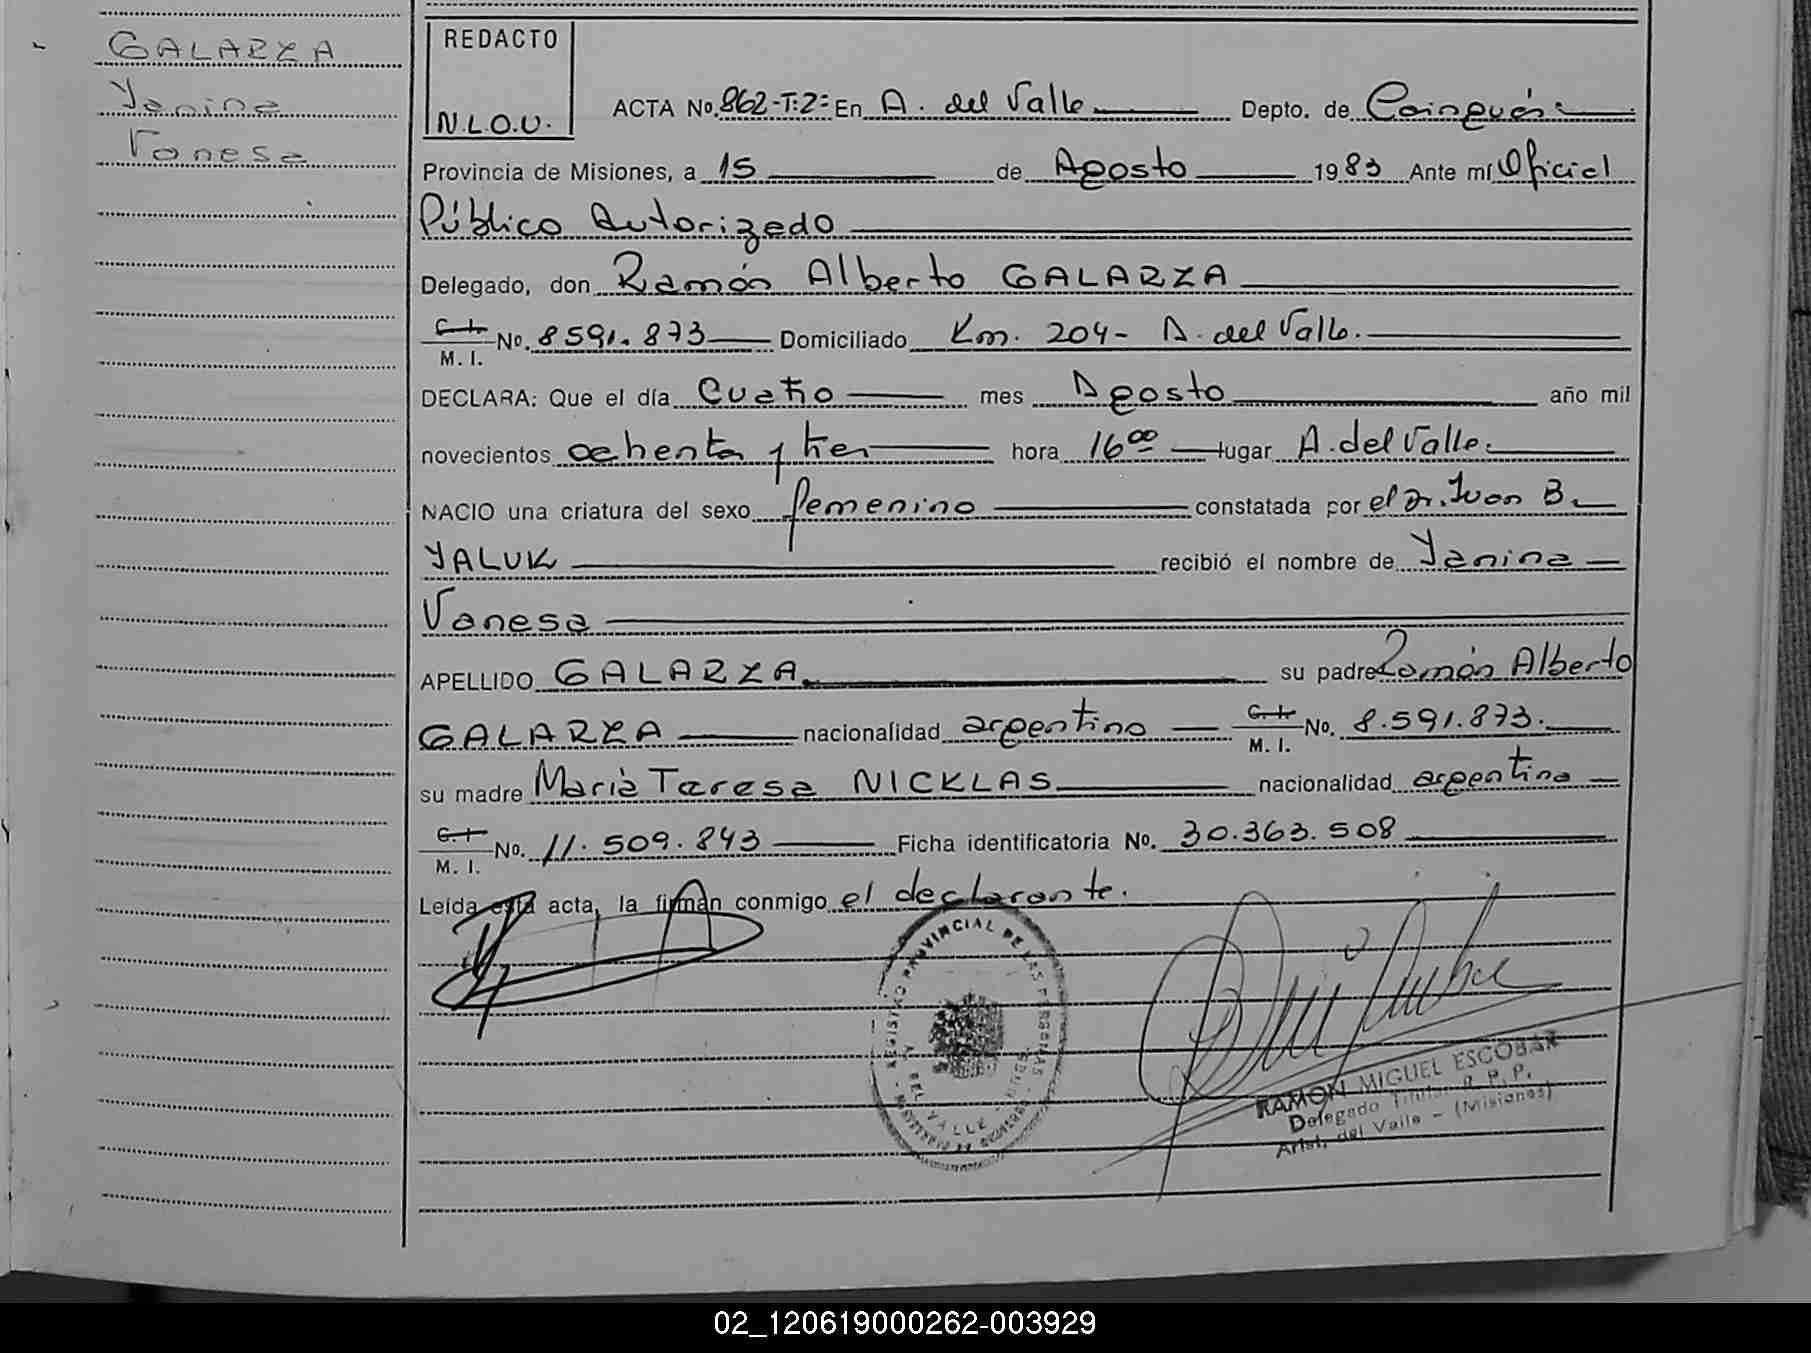 GALARZA
Yanina
Vanesa
REDACTO
N.L.O.U.
ACTA No. 862-T:2= En A. del Valle Depto. de Cainguás
Provincia de Misiones, a 15 de Agosto 1983 Ante mí Oficial
Público Autorizado
Delegado, don Ramón Alberto GALARZA
C.I. / M. I. No. 8591.873 Domiciliado Km. 204- A. del Valle.
DECLARA: Que el día Cuatro mes Agosto año mil
novecientos ochenta y tres hora 16 00 lugar A. del Valle
NACIO una criatura del sexo femenino constatada por el Dr. Juan B.
YALUK recibió el nombre de Yanina
Vanesa
APELLIDO GALARZA su padre Ramón Alberto
GALARZA nacionalidad argentino C.I. / M. I. No. 8.591.873.
su madre María Teresa NICKLAS nacionalidad argentina
C.I. / M. I. No. 11.509.843 Ficha identificatoria No. 30.363.508
Leída esta acta, la firman conmigo el declarante.
REGISTRO PROVINCIAL DE LAS PERSONAS
MINISTERIO DE GOBIERNO
A. DEL VALLE
RAMON MIGUEL ESCOBAR
Delegado Titular R. P. P.
Arist. del Valle - (Misiones)
02_120619000262-003929